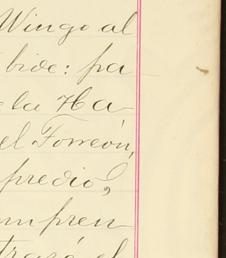 Wingo al
bide: pa
la Ha
el Torreón,
predio,
mpren
trasó el